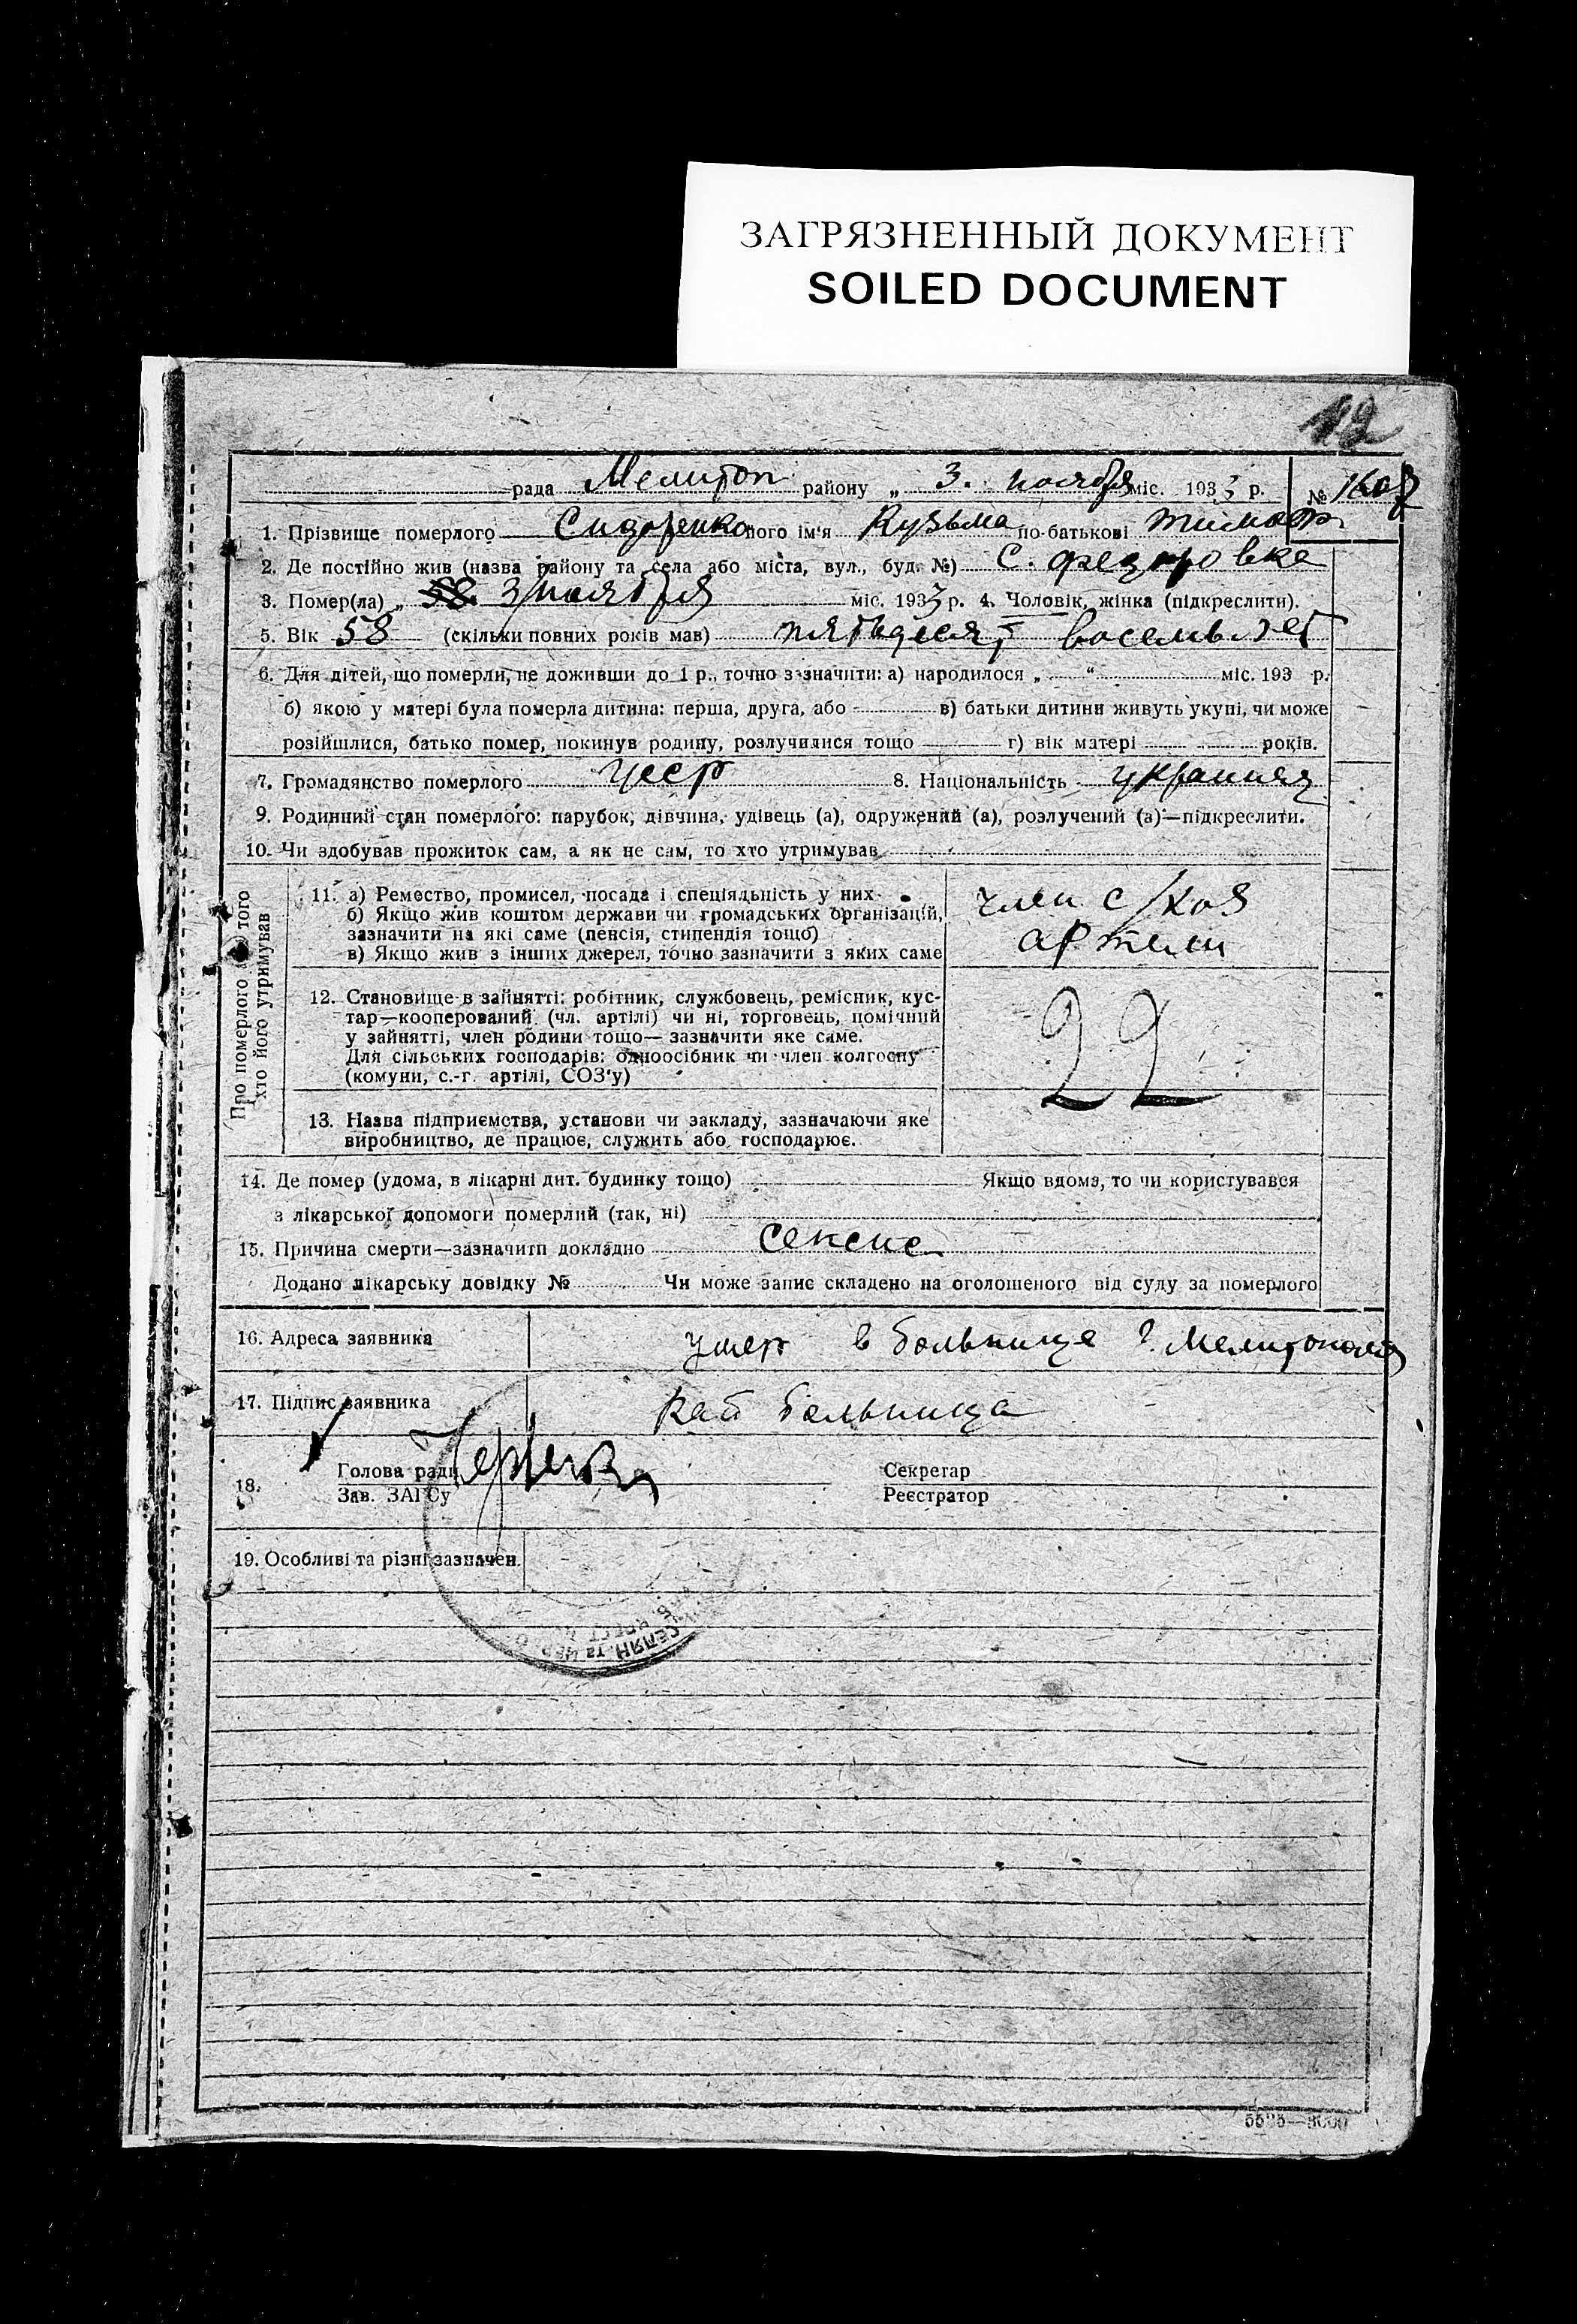 ЗАГРЯЗНЕННЫЙ ДОКУМЕНТ
SOILED DOCUMENT
12
рада Мелитоп району „ 3. ноября міс. 1933 р. №
1. Прізвище померлого Сидоренко його ім'я Кузьма по-батькові
2. Де постійно жив (назва району та села або міста, вул., буд. №) С. Федоровка
3. Помер(ла) „ 58. 3/ноября міс. 1933 р. 4. Чоловік, жінка (підкреслити).
5. Вік 58 (скільки повних років мав) пятьдесят восемь лет
6. Для дітей, що померли, не доживши до 1 р., точно зазначити: а) народилося „ “ міс. 193 р.
б) якою у матері була померла дитина: перша, друга, або в) батьки дитини живуть укупі, чи може
розійшлися, батько помер, покинув родину, розлучилися тощо г) вік матері років.
7. Громадянство померлого усср 8. Національність украинец
9. Родинний стан померлого: парубок, дівчина, удівець (а), одружений (а), розлучений (а)—підкреслити.
10. Чи здобував прожиток сам, а як не сам, то хто утримував
Про померлого або того
хто його утримував
11. а) Ремество, промисел, посада і спеціяльність у них
б) Якщо жив коштом держави чи громадських організацій,
зазначити на які саме (пенсія, стипендія тощо)
в) Якщо жив з інших джерел, точно зазначити з яких саме
член с/хоз
артели
12. Становище в зайнятті: робітник, службовець, ремісник, кус-
тар—кооперований (чл. артілі) чи ні, торговець, помічний
у зайнятті, член родини тощо— зазначити яке саме.
Для сільських господарів: одноосібник чи член колгоспу
(комуни, с.-г. артілі, СОЗ'у)
22
13. Назва підприємства, установи чи закладу, зазначаючи яке
виробництво, де працює, служить або господарює.
14. Де помер (удома, в лікарні дит. будинку тощо) Якщо вдома, то чи користувався
з лікарської допомоги померлий (так, ні)
15. Причина смерти—зазначити докладно сепсис
Додано лікарську довідку № Чи може запис складено на оголошеного від суду за померлого
16. Адреса заявника умер в больнице г. Мелитополя
17. Підпис заявника Раб больница
18. Голова ради Секретар
Зав. ЗАГСу Реєстратор
19. Особливі та різні зазначен.
СЕЛЯН. та